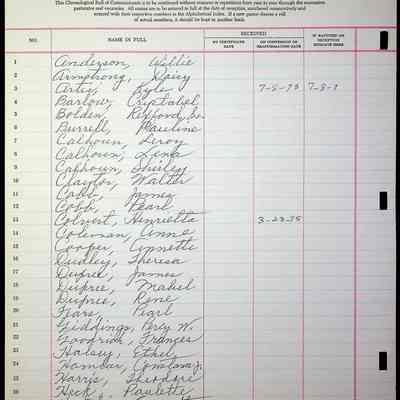 This Chronological Roll of Communicants is to be continued without erasure or repetition from year to year through the successive
pastorates and vacancies. All names are to be entered in full at the date of reception, numbered consecutively and
entered with their respective numbers in the Alphabetical Index. If a new pastor desires a roll
of actual members, it should be kept in another book.
RECEIVED
NO. NAME IN FULL
ON CERTIFICATE DATE ON CONFESSION OR REAFFIRMATION DATE IF BAPTIZED ON RECEPTION INDICATE HERE
1 Anderson, Willie
2 Armstrong, Daisy
3 Artis, Lyle 7-8-73 7-8-7
4 Barlow,
5 Bolden,
6 Burrell, Pauline
7 Calhoun, Leroy
8 Calhoun, Lena
9 Calhoun, Shirley
10 Claytor, Walter
11 Cobb, James
12 Cobb, Pearl
13 Colvert, Henrietta 3-23-75
14 Coleman, Anne
15 Cooper, Annette
16 Dudley, Theresa
17 Dupree, James
18 Dupree, Mabel
19 Dupree, Rene
20 Fears, Pearl
21 Giddings, Percy W.
22 Goodrich, Frances
23 Halsey, Ethel
24
25 Harris, Theodore
26 Heck, Paulette